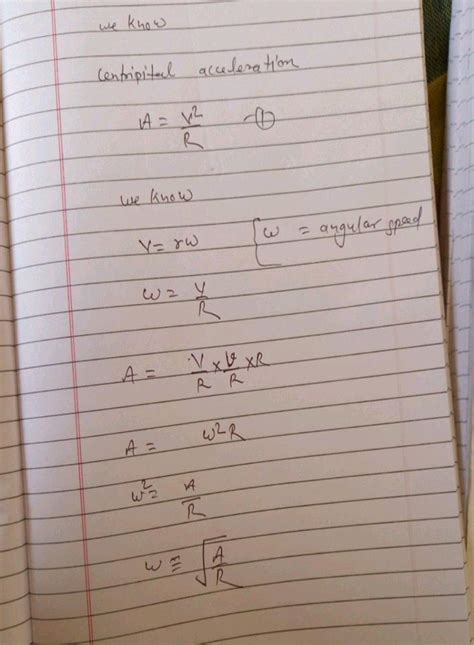 we know
Centripital acceleration
A = V²/R —①
we know
V = rω { ω = angular speed
ω = V/R
A = V/R × V/R × R
A = ω²R
ω² = A/R
ω = √(A/R)